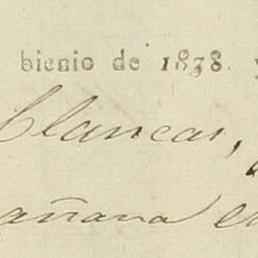 bienio de 1838. y
Clancas,
añana